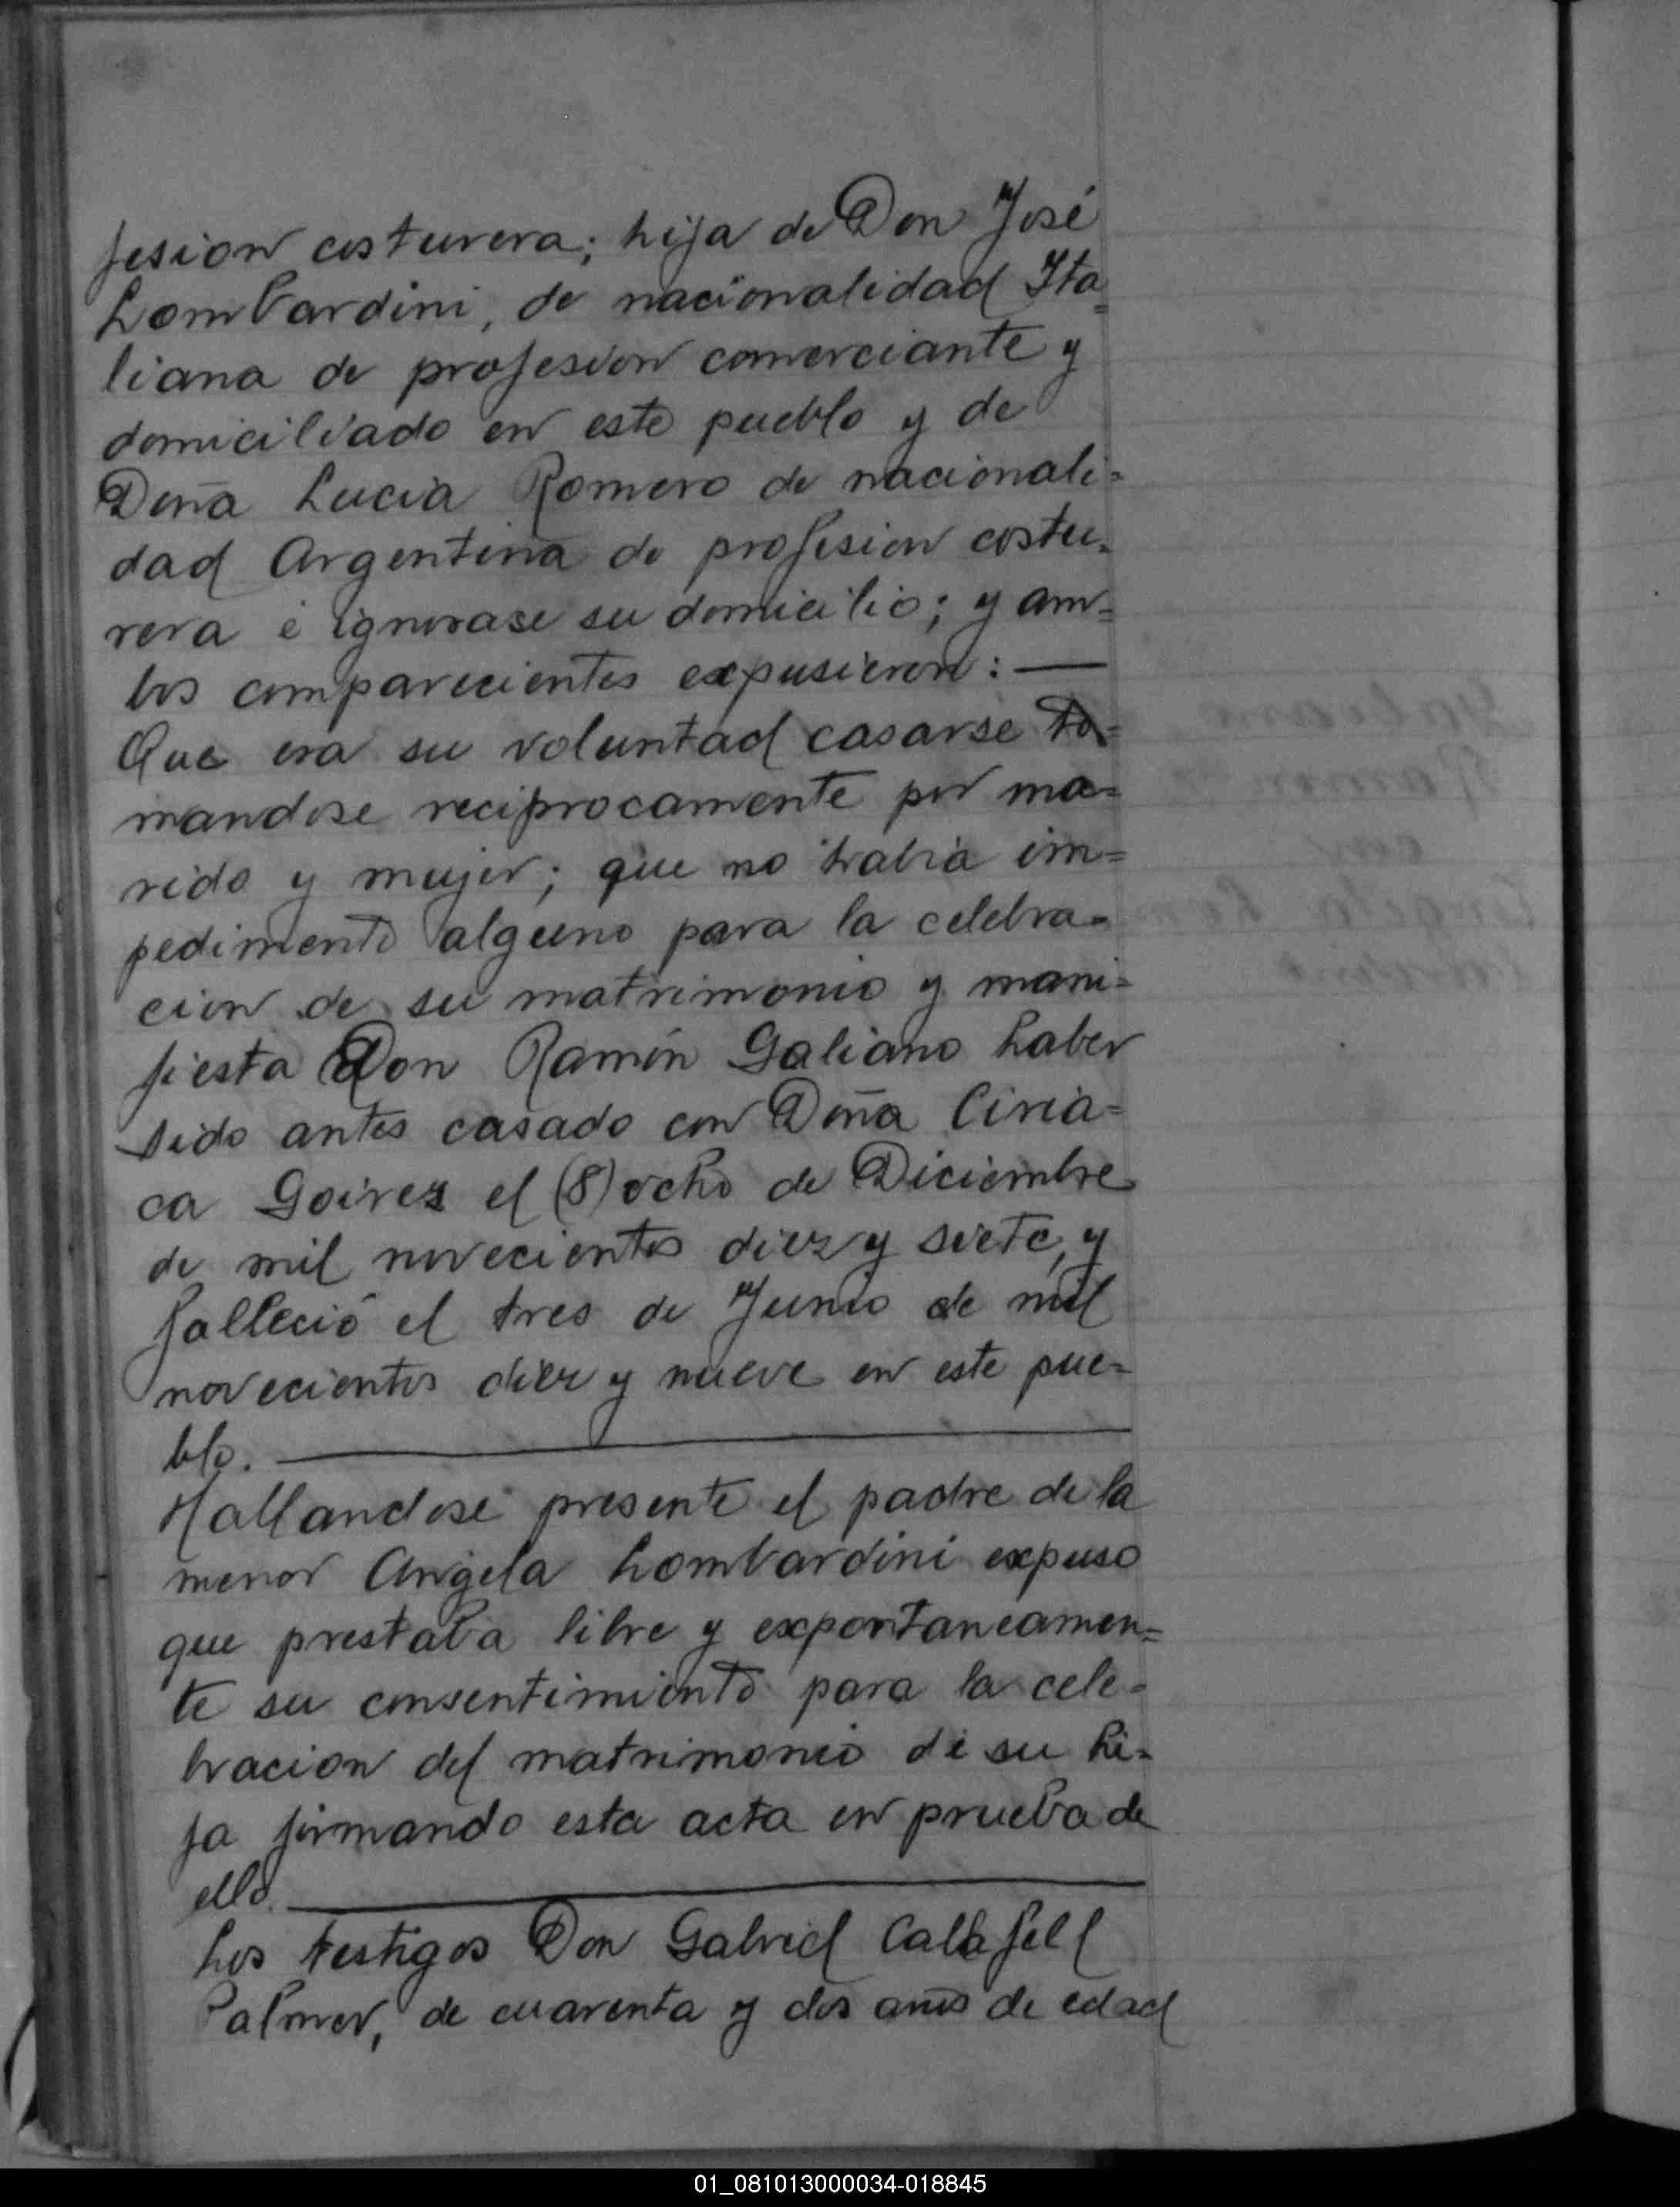 fesion costurera; hija de Don José
Lombardini, de nacionalidad Ita=
liana de profesion comerciante y
domiciliado en este pueblo y de
Doña Lucia Romero de nacionali=
dad Argentina de profesion costu=
rera é ignorase su domicilio; y am=
bos comparecientes expusieron: —
Que era su voluntad casarse to=
mandose reciprocamente por ma=
rido y mujer; que no habia im=
pedimento alguno para la celebra=
cion de su matrimonio y mani=
fiesta Don Ramón Galiano haber
sido antes casado con Doña Ciria=
ca Goirez el (8) ocho de Diciembre
de mil novecientos diez y siete, y
falleció el tres de Junio de mil
novecientos diez y nueve en este pue=
blo. —
Hallandose presente el padre de la
menor Angela Lombardini expuso
que prestaba libre y expontaneamen=
te su consentimiento para la cele=
bracion del matrimonio de su hi=
ja firmando esta acta en prueba de
ello. —
Los testigos Don Gabriel Calafell
Palmer, de cuarenta y dos años de edad
01_081013000034-018845